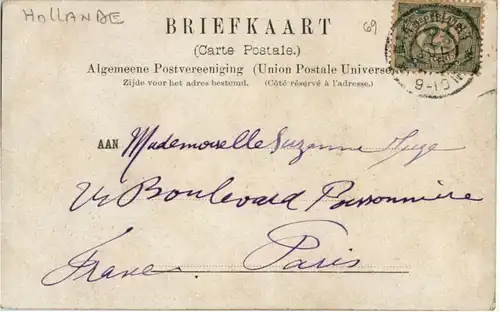 HOLLANDE
BRIEFKAART
69
(Carte Postale.)
Algemeene Postvereeniging (Union Postale Universe
Zijde voor het adres bestemd. (Côté réservé à l'adresse.)
9-10
AAN Mademoiselle Suzanne Huge
Boulevard Poissonnière
France. Paris